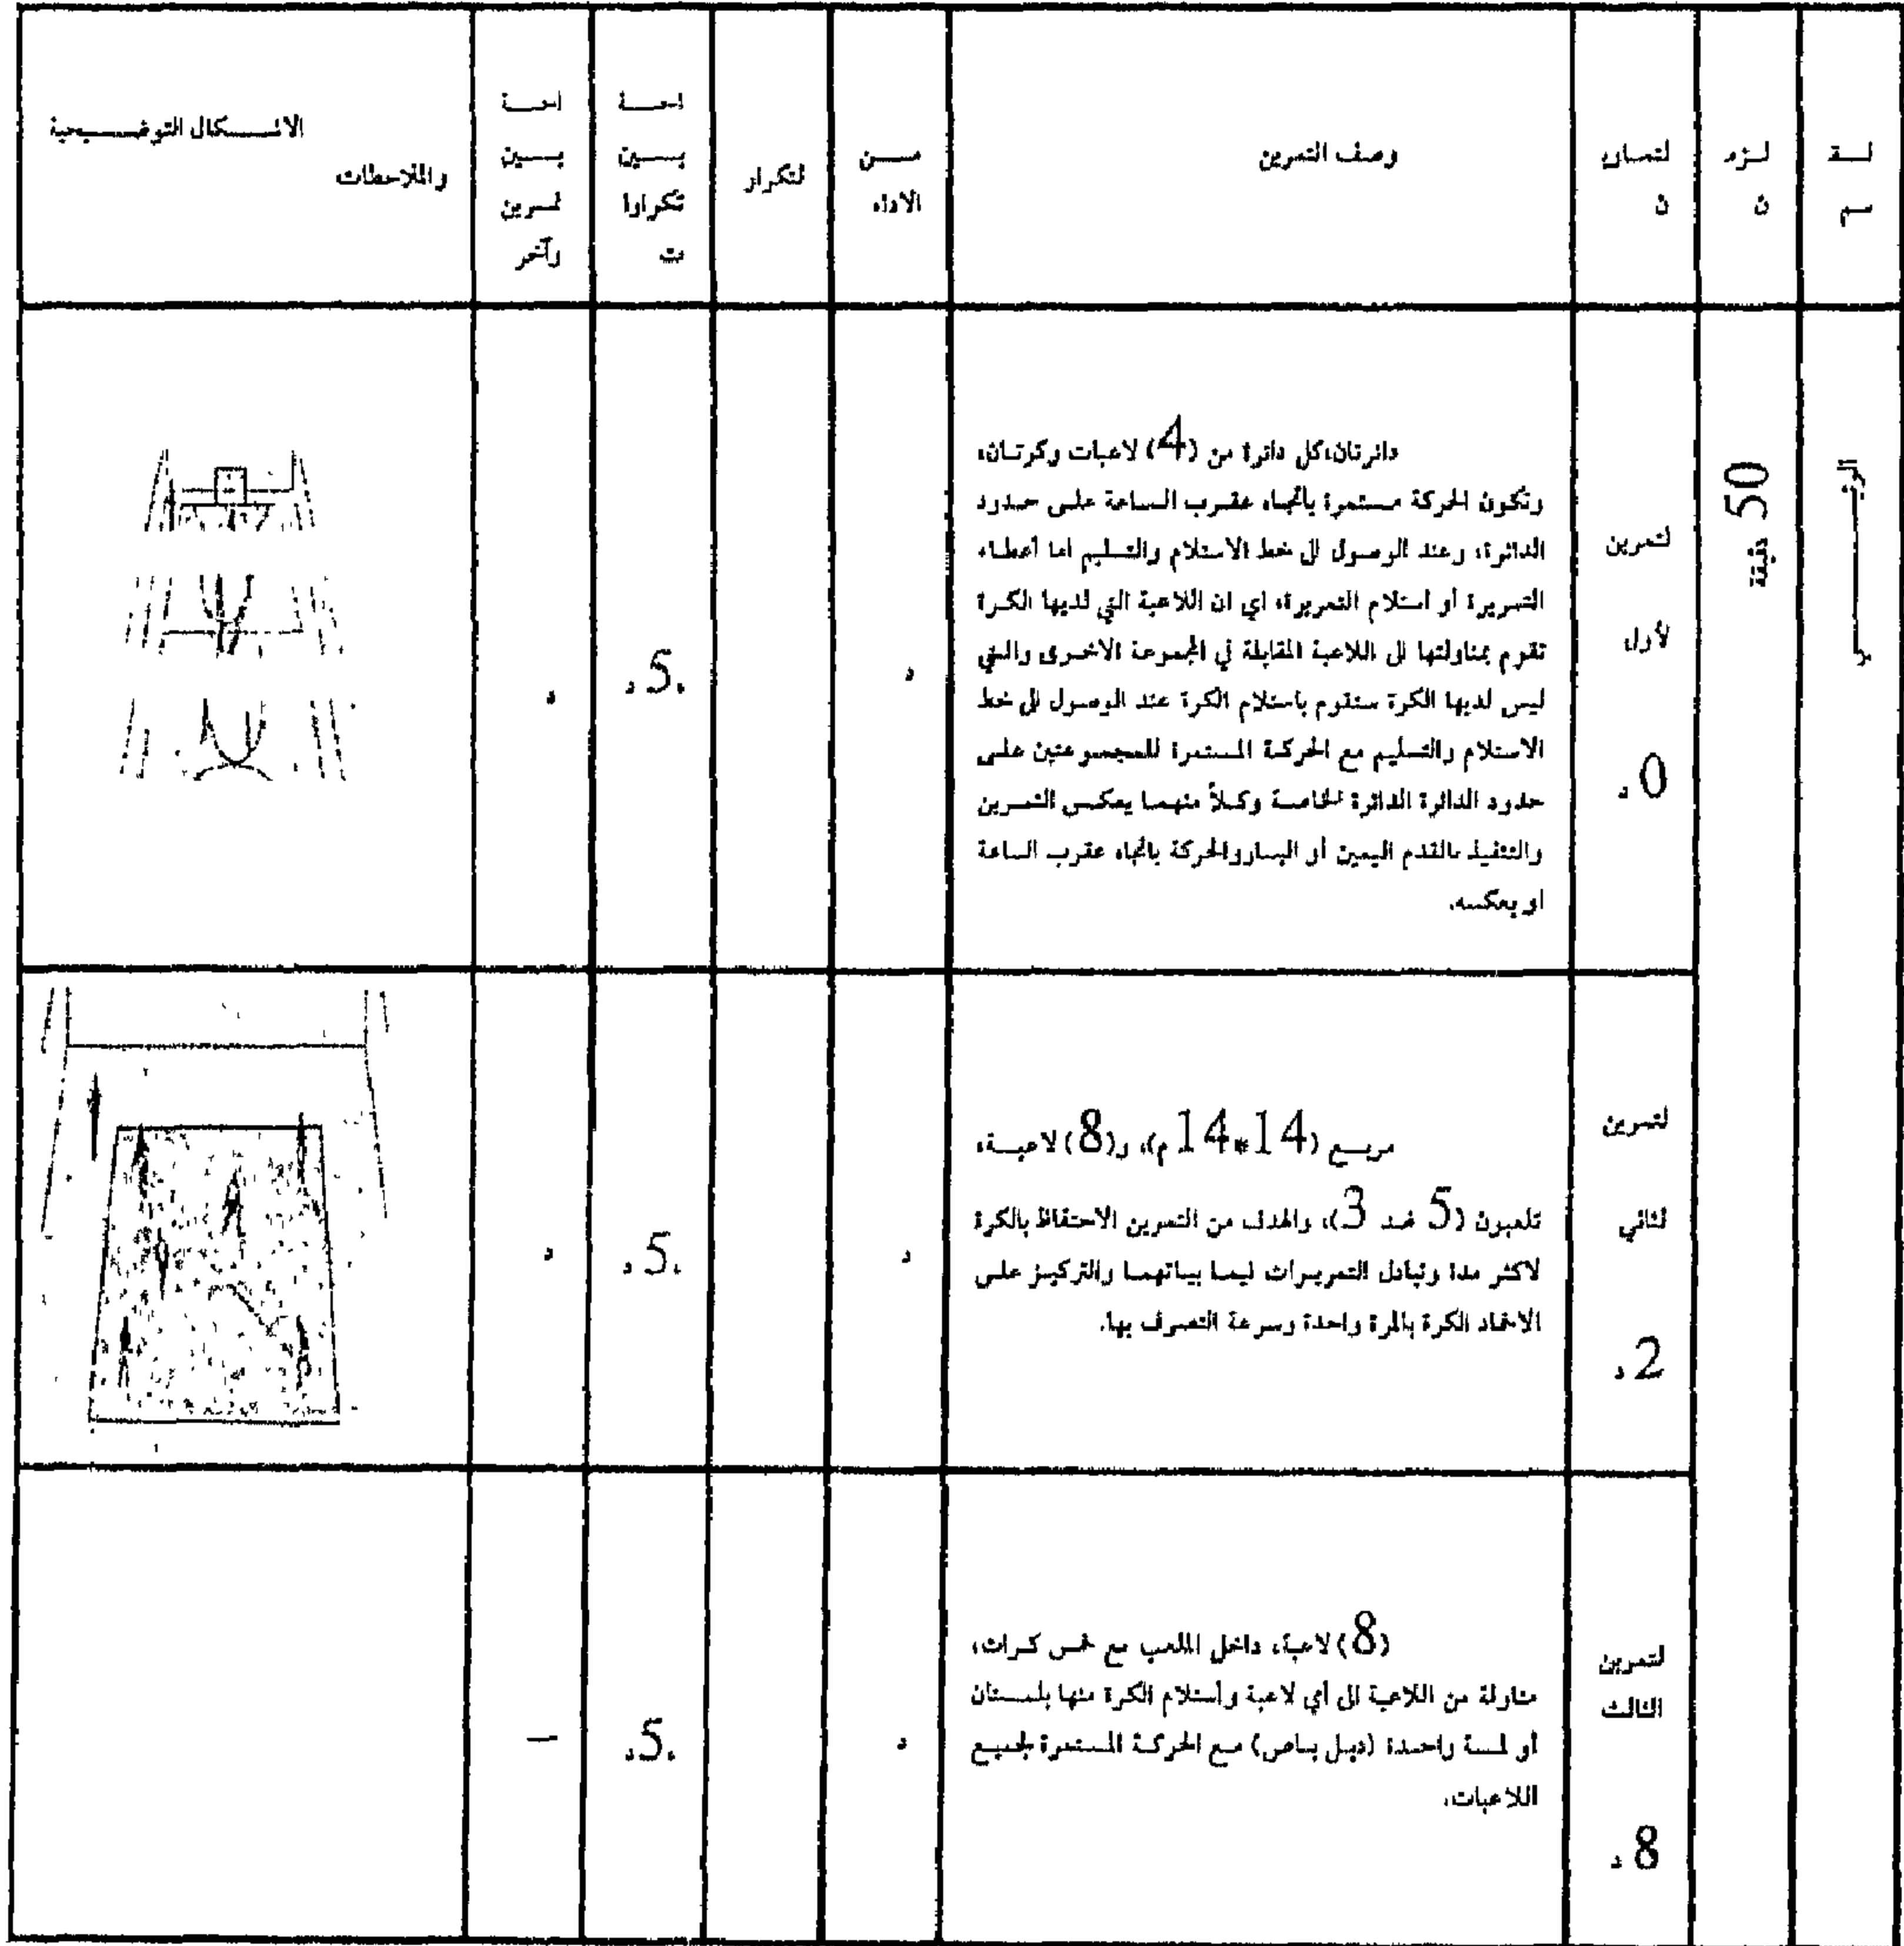 لقـ
سم
لـزمـ
ن
لتمـاريـ
ن
وصف التمرين
مــن
الاداء
لتكرار
احــة
بــين
تكرارا
ت
احــة
بــين
تمــرين
وآخر
الاشــكال التوضــيحية
والملاحظات
50 دقيقة
لتمرين
لأول
0 د.
دائرتان،كل دائرة من (4) لاعبات وكرتـان،
وتكون الحركة مستمرة باتجاه عقـرب الـساعة علـى حـدود
الدائرة، وعند الوصول الى خط الاستلام والتسليم اما أعطـاء
التمريرة أو استلام التمريرة، اي ان اللاعبة التي لديها الكـرة
تقوم بمناولتها الى اللاعبة المقابلة في المجموعة الاخـرى والـتي
ليس لديها الكرة ستقوم باستلام الكرة عند الوصول الى خط
الاستلام والتسليم مع الحركـة المـستمرة للمجمـوعتين علـى
حدود الدائرة الدائرة الخاصـة وكـلاً منهمـا يعكـس التمـرين
والتنفيذ بالقدم اليمين أو اليساروالحركة باتجاه عقرب الساعة
او بعكسه.
د
.5 د.
د
لتمرين
لثاني
2 د.
مربـع (14*14 م)، و(8) لاعبـة،
تلعبون (5 ضد 3)، والهدف من التمرين الاحتفاظ بالكرة
لاكثر مدة وتبادل التمريـرات فيمـا بيناتهمـا والتركيـز علـى
الاخماد الكرة بالمرة واحدة وسرعة التصرف بها.
د
.5 د.
د
لتمرين
الثالث
8 د.
(8) لاعبة، داخل الملعب مع خمس كـرات،
مناولة من اللاعبة الى أي لاعبة وأستلام الكرة منها بلمـستان
أو لمسة واحـدة (دبـل بـاص) مـع الحركـة المـستمرة لجميـع
اللاعبات.
د
.5 د.
–